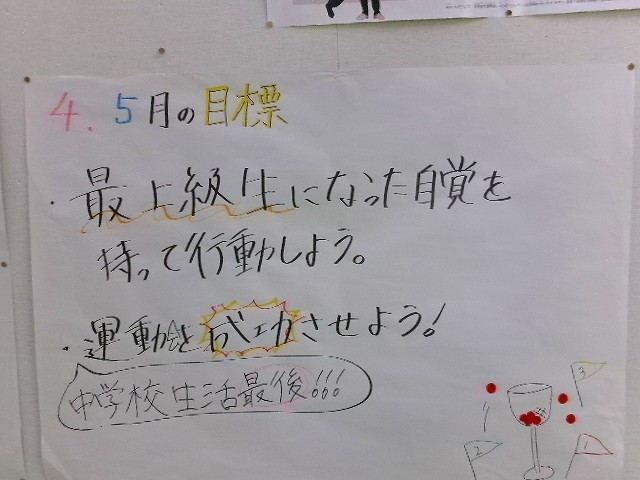 4.5月の目標
・最上級生になった自覚を
持って行動しよう。
・運動会を成功させよう!
中学校生活最後!!!
3
2
1